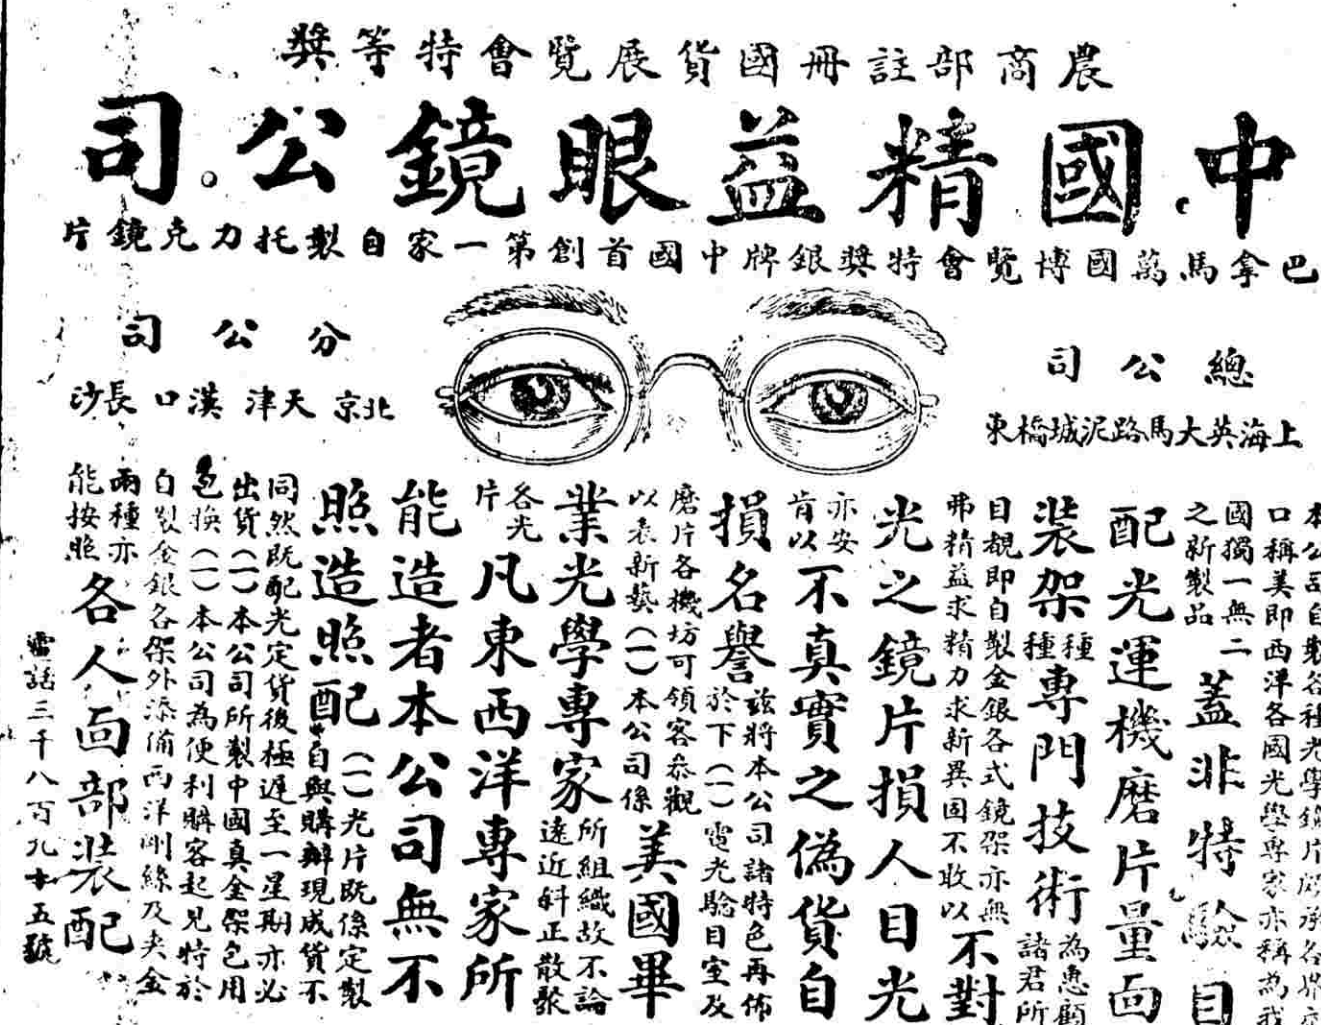 農商部註冊國貨展覽會特等獎
中國精益眼鏡公司
巴拿馬萬國博覽會特獎銀牌中國首創第一家自製托力克鏡片
總公司
上海英大馬路泥城橋東
分公司
北京 天津 漢口 長沙
本公司自製各種光學鏡片承各界
口稱美即西洋各國光學專家亦稱為我
國獨一無二
之新製品
蓋非特驗目
配光運機磨片量面
裝架
種種
專門技術
為惠顧
諸君所
目覩即自製金銀各式鏡架亦無
弗精益求精力求新異固不收以
不對
光之鏡片損人目光
亦安
肯以
不真實之偽貨自
損名譽
茲將本公司諸特色再佈
於下(一)電光驗目室及
磨片各機坊可領客參觀
以表新藝(一)本公司係
美國畢
業光學專家
所組織故不論
遠近斜正散聚
各光
片
凡東西洋專家所
能造者本公司無不
照造照配
(一)光片既係定製
自與購辦現成貨不
同然既配光定貨後極遲至一星期亦必
出貨(一)本公司所製中國真金架包用
包換(一)本公司為便利購客起見特於
白製金銀各架外添備西洋鋼絲及夾金
兩種亦
能按照
各人面部裝配
電話三千八百九十五號